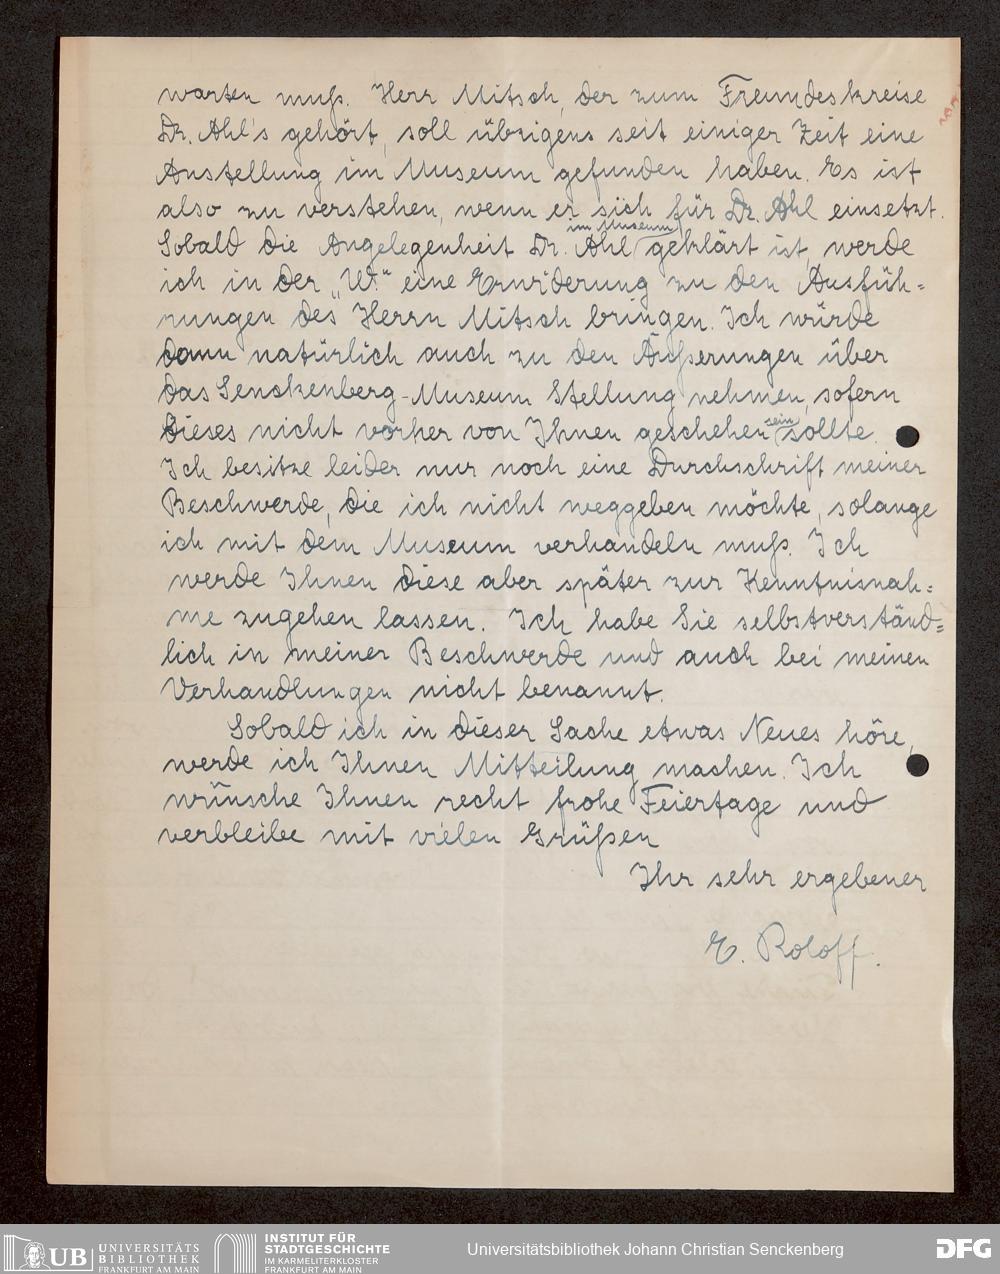 warten muß. Herr Mitsch, der zum Freundeskreise
Dr. Ahl's gehört, soll übrigens seit einiger Zeit eine
Anstellung im Museum gefunden haben. Es ist
also zu verstehen, wenn er sich für Dr. Ahl einsetzt.
Sobald die Angelegenheit Dr. Ahl im Museum geklärt ist, werde
ich in der „W." eine Erwiderung zu den Ausfüh=
rungen des Herrn Mitsch bringen. Ich würde
dann natürlich auch zu den Äußerungen über
das Senckenberg-Museum Stellung nehmen, sofern
dieses nicht vorher von Ihnen geschehen sein sollte.
Ich besitze leider nur noch eine Durchschrift meiner
Beschwerde, die ich nicht weggeben möchte, solange
ich mit dem Museum verhandeln muß. Ich
werde Ihnen diese aber später zur Kenntnisnah=
me zugehen lassen. Ich habe Sie selbstverständ=
lich in meiner Beschwerde und auch bei meinen
Verhandlungen nicht benannt.
Sobald ich in dieser Sache etwas Neues höre,
werde ich Ihnen Mitteilung machen. Ich
wünsche Ihnen recht frohe Feiertage und
verbleibe mit vielen Grüßen
Ihr sehr ergebener
E. Roloff.
UB UNIVERSITÄTS
BIBLIOTHEK
FRANKFURT AM MAIN
INSTITUT FÜR
STADTGESCHICHTE
IM KARMELITERKLOSTER
FRANKFURT AM MAIN
Universitätsbibliothek Johann Christian Senckenberg
DFG